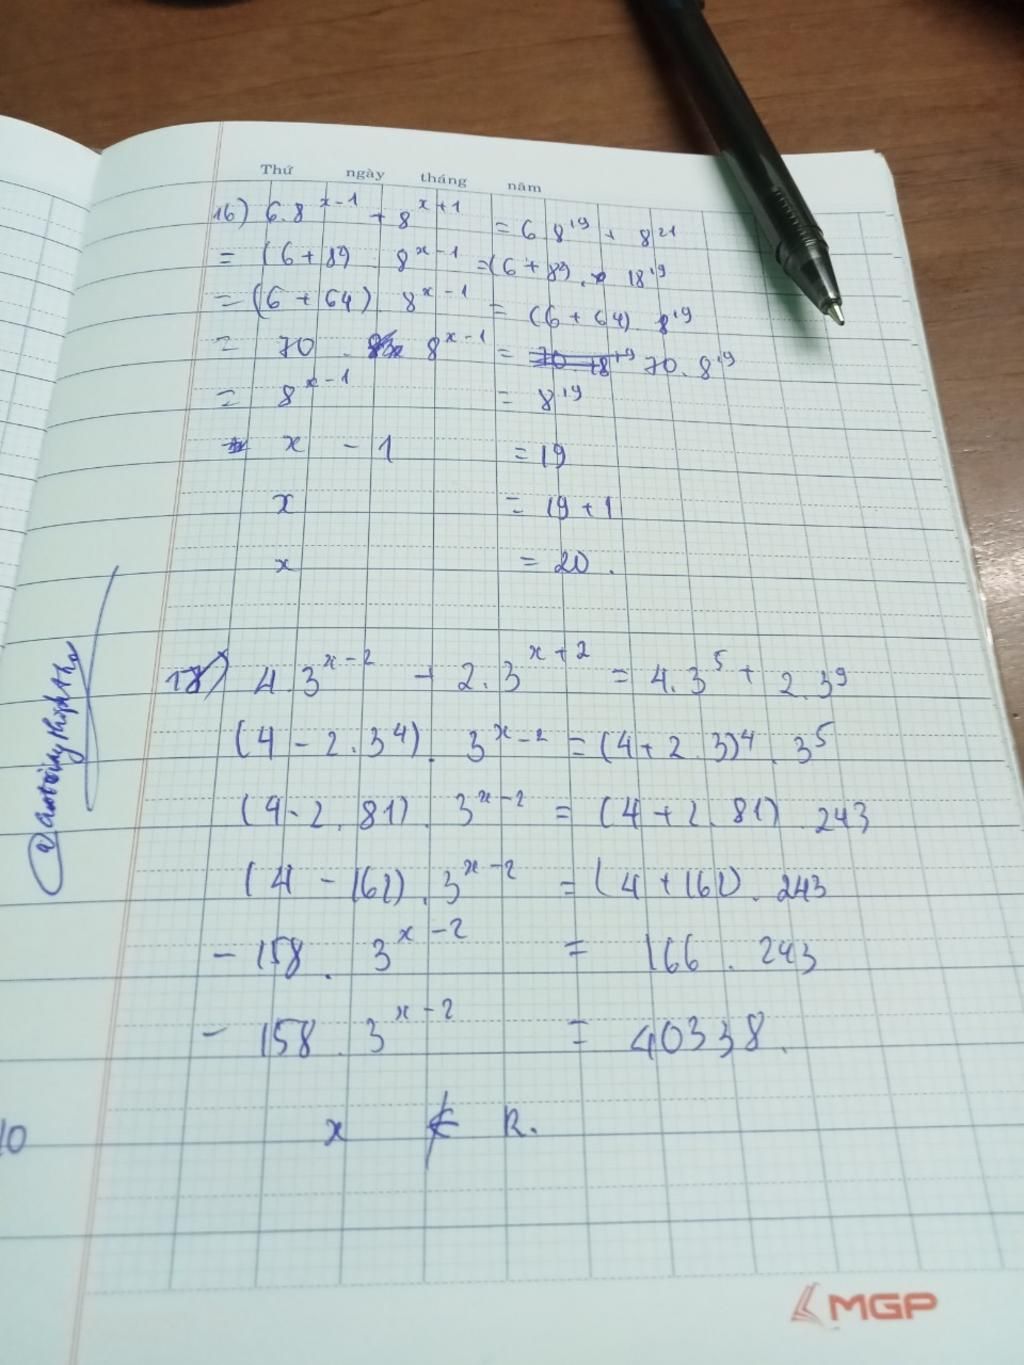 Thứ ngày tháng năm
16) 6.8^{x-1} + 8^{x+1} = 6 8^{19} + 8^{21}
= (6 + 8²) . 8^{x-1} = (6 + 8²) . 18^{19}
= (6 + 64) 8^{x-1} = (6 + 64) 8^{19}
= 70 . 8^{x-1} = 70 . 8^{19}
= 8^{x-1} = 8^{19}
x - 1 = 19
x = 19 + 1
x = 20 .
18) 4.3^{x-2} - 2.3^{x+2} = 4.3^5 + 2.3^9
(4 - 2.3^4) . 3^{x-2} = (4 + 2.3)^4 . 3^5
(4 - 2.81) . 3^{x-2} = (4 + 2.81) . 243
(4 - 162) . 3^{x-2} = (4 + 162) . 243
- 158 . 3^{x-2} = 166 . 243
- 158 . 3^{x-2} = 40338.
x ∉ R.
10
MGP